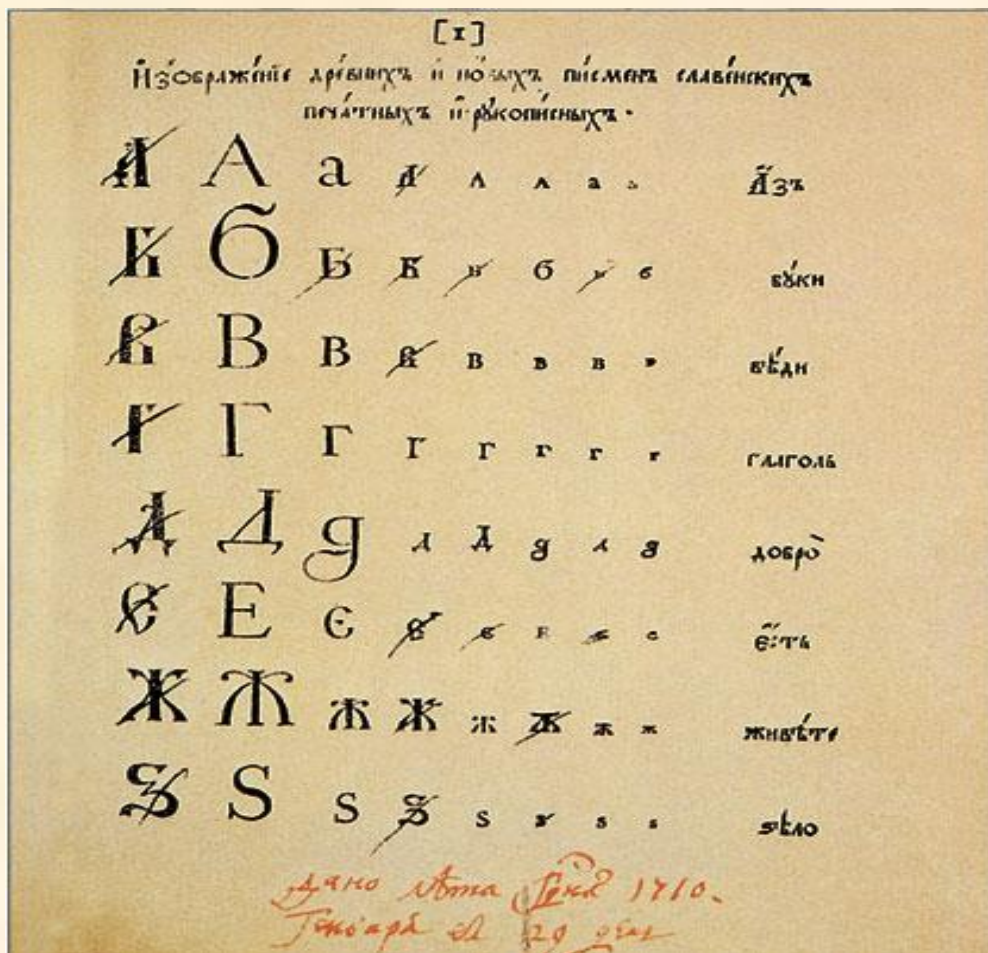 [1]
И҆зѡбраже́нїе дре́внихъ и҆ но́выхъ пи́сменъ славе́нскихъ
печа́тныхъ и҆ рꙋкопи́сныхъ.
А А а А а а а а А҆́зъ
Б Б Б Б б б б б бꙋ́ки
В В в В в в в в вѣ́ди
Г Г г г г г г г глаголь
Д Д д д д д д д добро̀
Є Е є є є е є є є҆́сть
Ж Ж ж ж ж ж ж ж живѣ́те
Ѕ Ѕ ѕ ѕ ѕ ѕ ѕ ѕ ѕѣло
Дано лѣта 1710.
Генваря 29 день